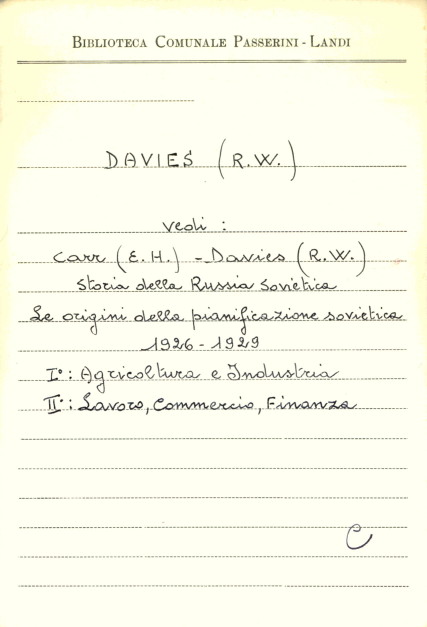 BIBLIOTECA COMUNALE PASSERINI - LANDI
DAVIES (R.W.)
vedi :
Carr (E.H.) - Davies (R.W.)
Storia della Russia Sovietica
Le origini della pianificazione sovietica
1926 - 1929
I°: Agricoltura e Industria
II°: Lavoro, Commercio, Finanza
C